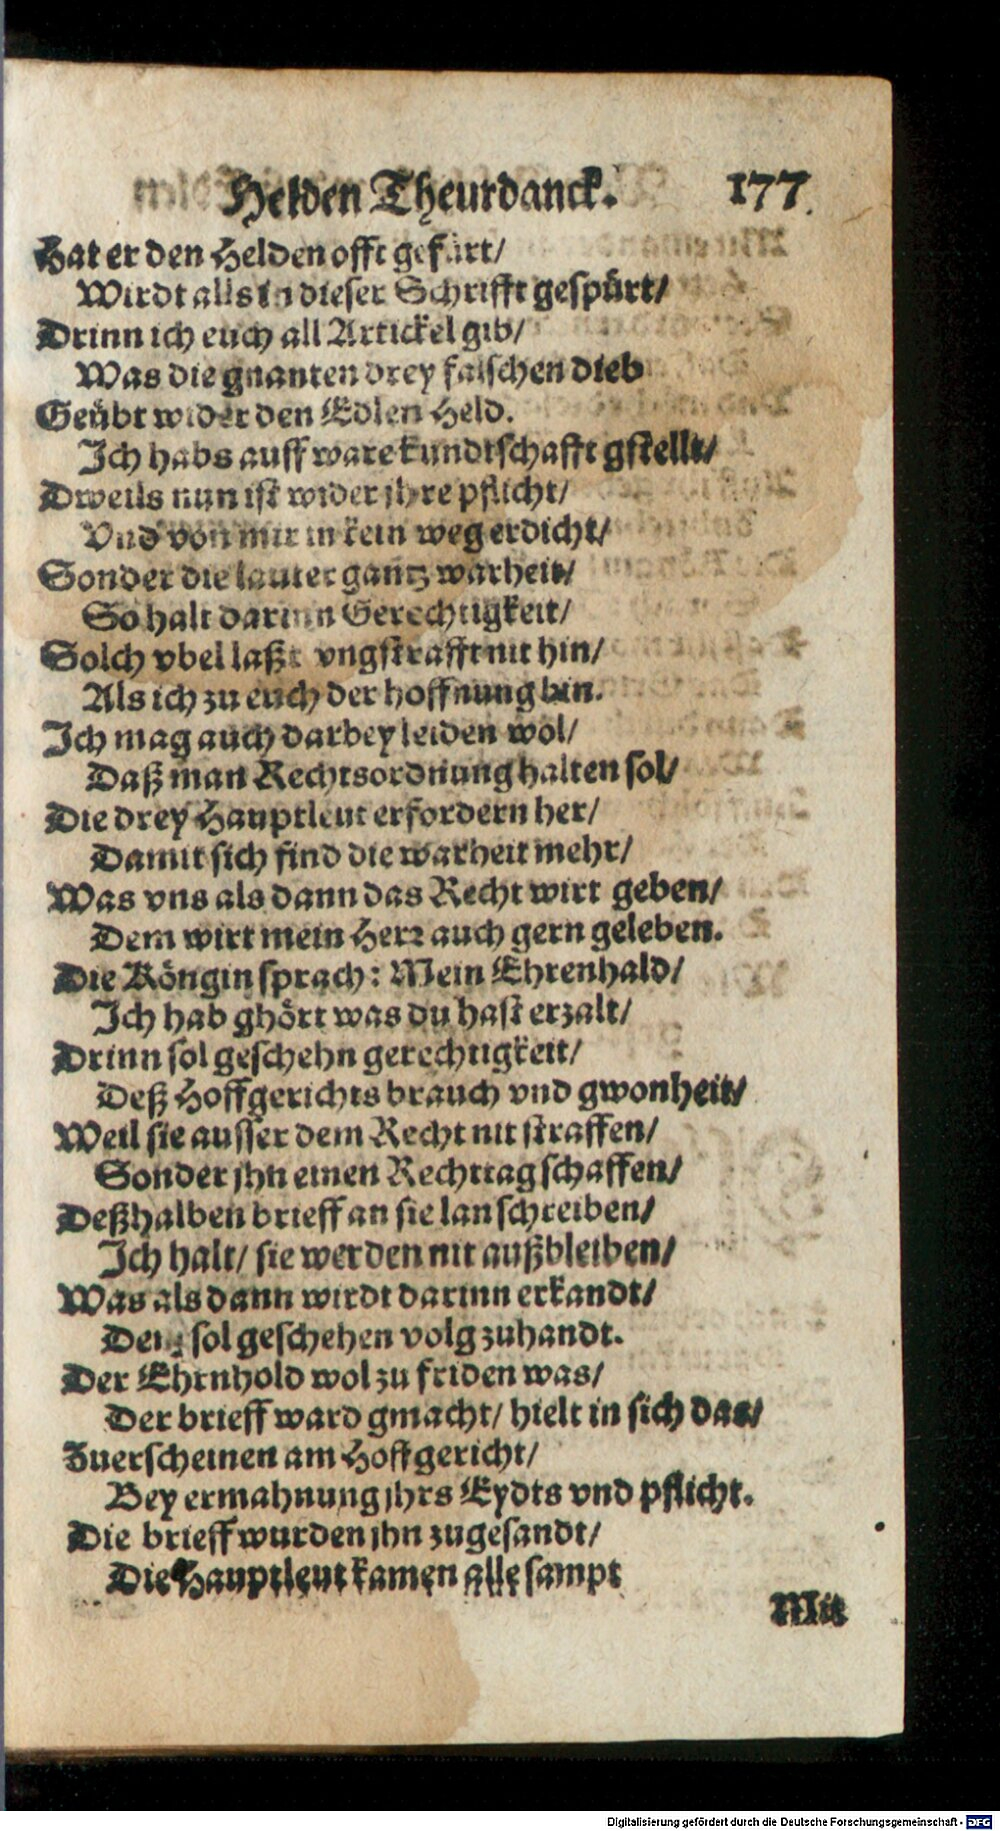 Helden Theurdanck. 177.
Hat er den Helden offt gefürt/
Wirdt alls in dieser Schrifft gespürt/
Drinn ich euch all Artickel gib/
Was die gnanten drey falschen dieb
Geübt wider den Edlen Held.
Ich habs auff ware kundtschafft gstellt/
Dweils nun ist wider jhre pflicht/
Vnd von mir in kein weg erdicht/
Sonder die lauter gantz warheit/
So halt darinn Gerechtigkeit/
Solch vbel laßt vngstrafft nit hin/
Als ich zu euch der hoffnung bin.
Ich mag auch darbey leiden wol/
Daß man Rechtsordnung halten sol/
Die drey Hauptleut erfordern her/
Damit sich find die warheit mehr/
Was vns als dann das Recht wirt geben/
Dem wirt mein Herr auch gern geleben.
Die Köngin sprach: Mein Ehrenhald/
Ich hab ghört was du hast erzalt/
Drinn sol geschehn gerechtigkeit/
Deß Hoffgerichts brauch vnd gwonheit/
Weil sie ausser dem Recht nit straffen/
Sonder jhn einen Rechttag schaffen/
Deßhalben brieff an sie lan schreiben/
Ich halt/ sie werden nit außbleiben/
Was als dann wirdt darinn erkandt/
Dem sol geschehen volg zuhandt.
Der Ehrnhold wol zu friden was/
Der brieff ward gmacht/ hielt in sich das/
Zuerscheinen am Hoffgericht/
Bey ermahnung jhrs Eydts vnd pflicht.
Die brieff wurden jhn zugesandt/
Die Hauptleut kamen alle sampt
Mit
Digitalisierung gefördert durch die Deutsche Forschungsgemeinschaft - DFG